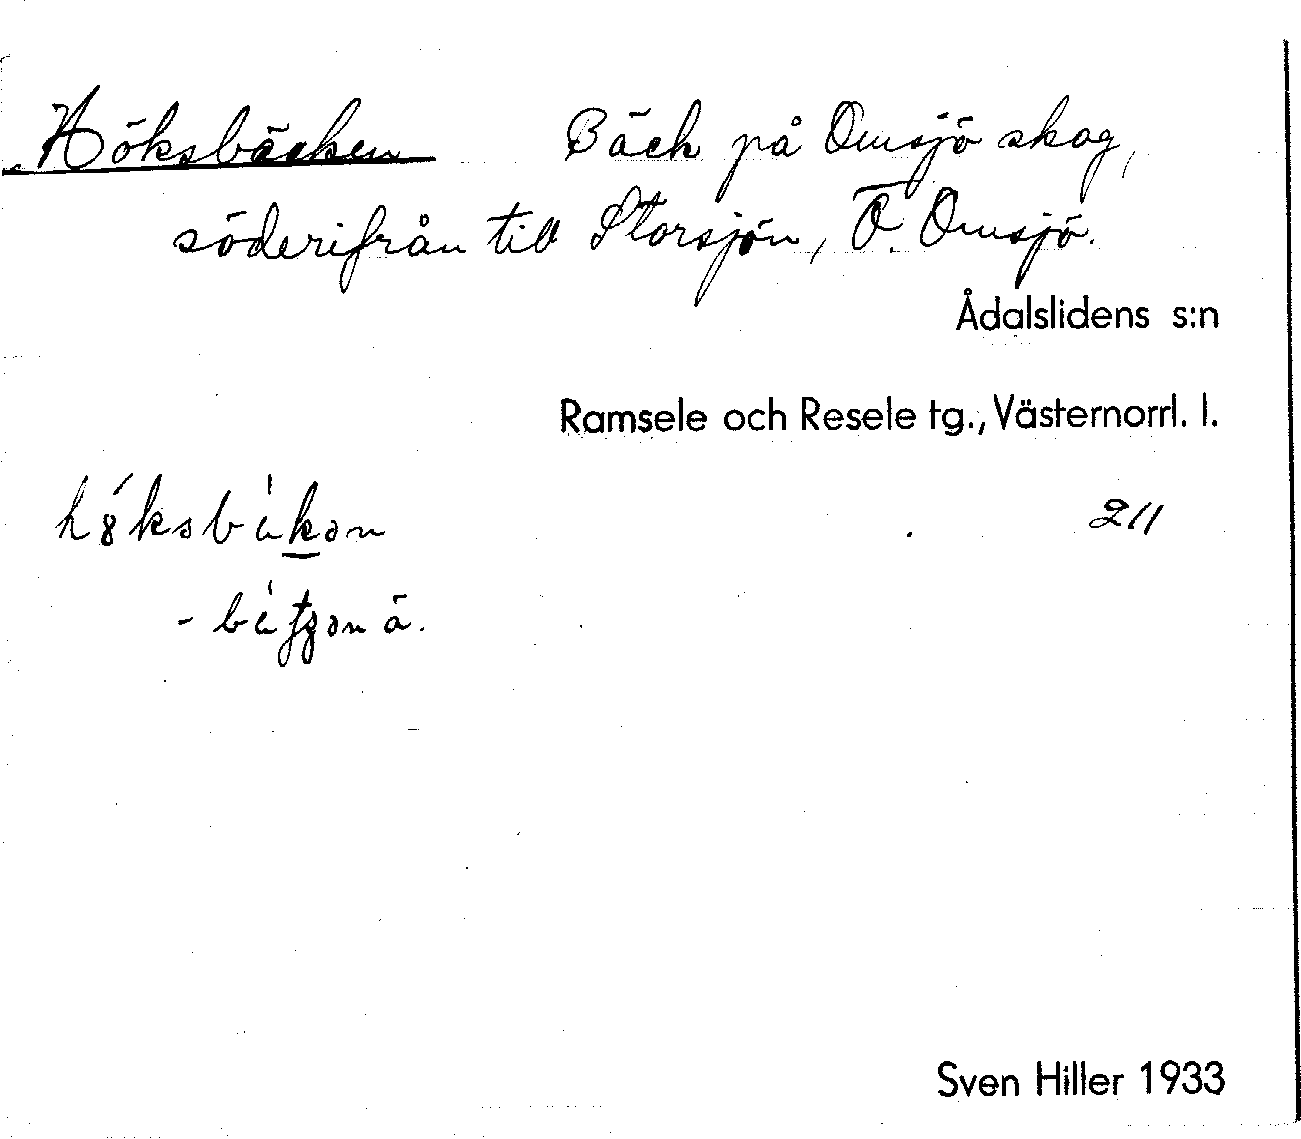 Höksbäcken Bäck på Omsjö skog,
söderifrån till Storsjön, Ö. Omsjö.
Ådalslidens s:n
Ramsele och Resele tg., Västernorrl. l.
211
ä.
Sven Hiller 1933